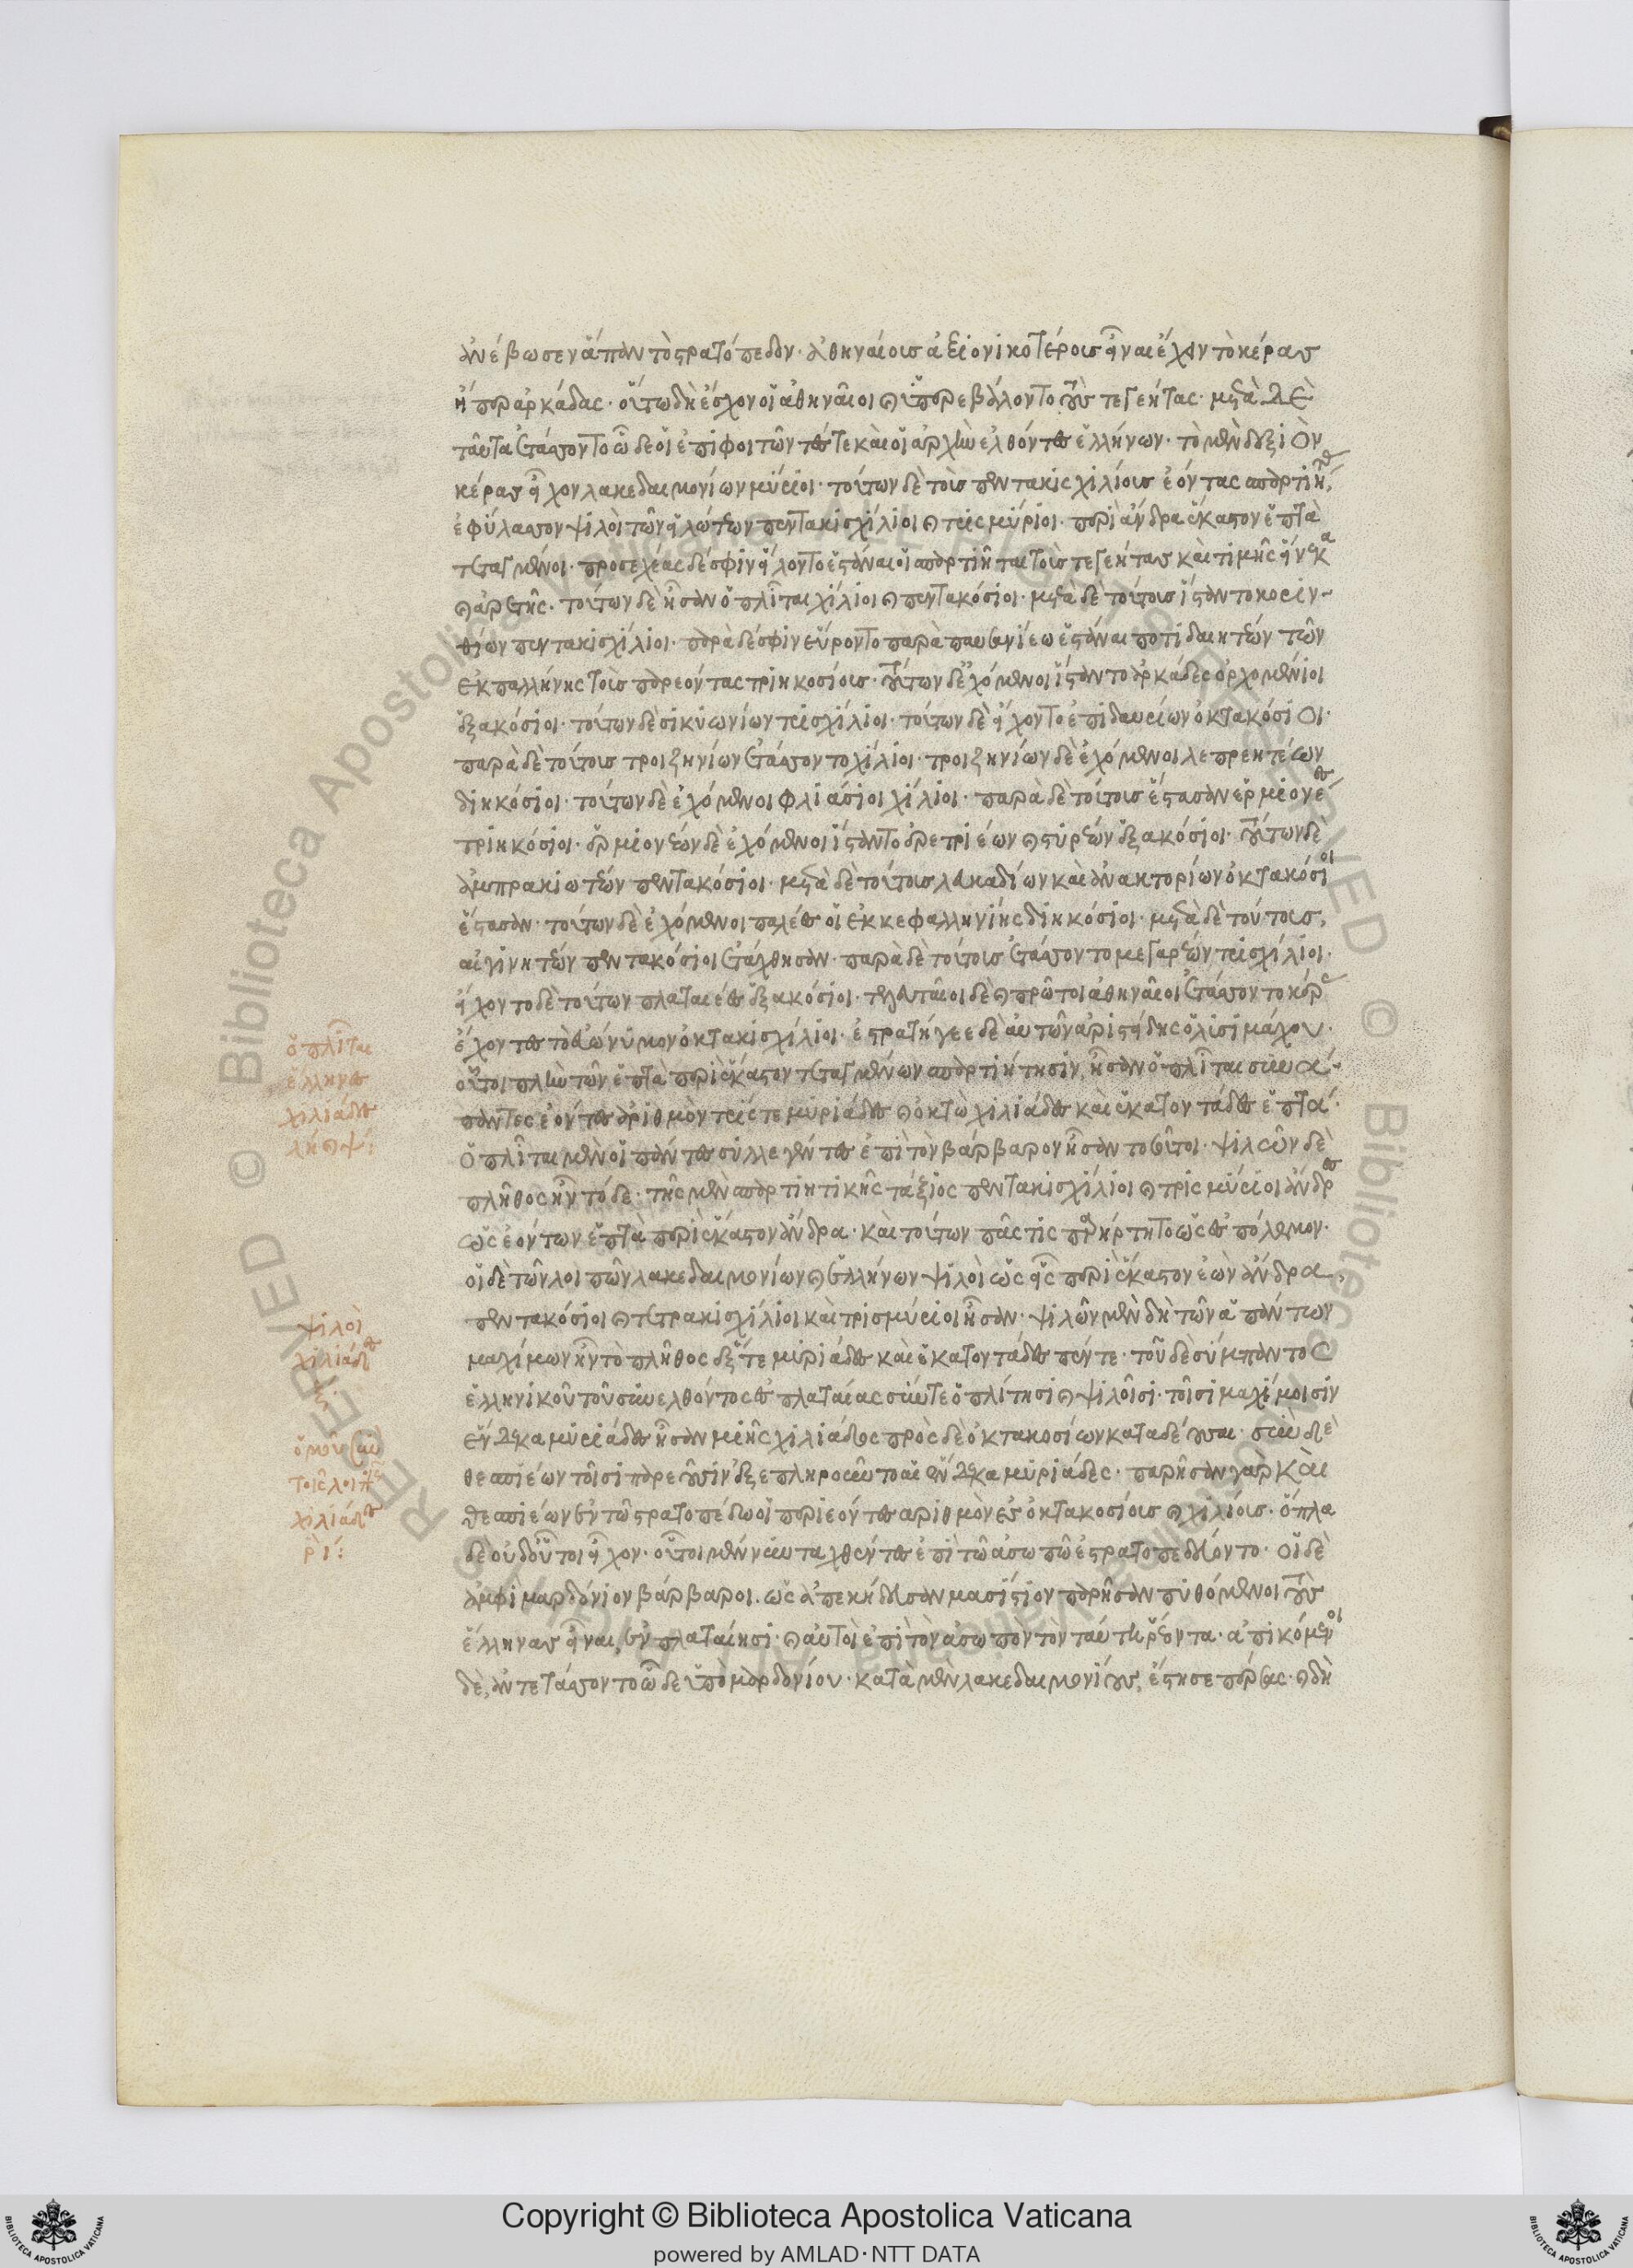 ἀνέβωσεν ἅπαν τὸ στρατόπεδον· ἀθηναίους ἀξιονικοτέρους εἶναι ἔχειν τὸ κέρας
ἤπερ ἀρκάδας· οὕτω δὴ ἔσχον οἱ ἀθηναῖοι καὶ ὑπερεβάλοντο τοὺς τεγεήτας· μετὰ δὲ
ταῦτα ἐτάσσοντο ὧδε οἱ ἐπιφοιτῶντές τε καὶ οἱ ἀρχὴν ἐλθόντες ἑλλήνων· τὸ μὲν δεξιὸν
κέρας εἶχον λακεδαιμονίων μύριοι· τούτων δὲ τοὺς πεντακισχιλίους ἐόντας σπαρτιήτας,
ἐφύλασσον ψιλοὶ τῶν εἱλώτων πεντακισχίλιοι καὶ τρισμύριοι· περὶ ἄνδρα ἕκαστον ἑπτὰ
τεταγμένοι· προσεχέας δέ σφιν εἵλοντο ἑστάναι οἱ σπαρτιῆται τοὺς τεγεήτας καὶ τιμῆς εἵνεκα
καὶ ἀρετῆς· τούτων δὲ ἦσαν ὁπλῖται χίλιοι καὶ πεντακόσιοι· μετὰ δὲ τούτους ἵσταντο κοριν
θίων πεντακισχίλιοι· παρὰ δέ σφιν εὕροντο παρὰ παυσανίεω ἑστάναι ποτιδαιητέων τῶν
ἐκ παλλήνης τοὺς παρεόντας τριηκοσίους· τούτων δὲ ἐχόμενοι ἵσταντο ἀρκάδες ὀρχομένιοι
ἑξακόσιοι· τούτων δὲ σικυωνίων τρισχίλιοι· τούτων δὲ εἴχοντο ἐπιδαυρίων ὀκτακόσιοι·
παρὰ δὲ τούτους τροιζηνίων ἐτάσσοντο χίλιοι· τροιζηνίων δὲ ἐχόμενοι λεπρεητέων
διηκόσιοι· τούτων δὲ ἐχόμενοι φλιάσιοι χίλιοι· παρὰ δὲ τούτους ἔστασαν ἑρμιονέες
τριηκόσιοι· ἑρμιονέων δὲ ἐχόμενοι ἵσταντο ἐρετριέων καὶ στυρέων ἑξακόσιοι· τούτων δὲ
ἀμπρακιωτέων πεντακόσιοι· μετὰ δὲ τούτους λευκαδίων καὶ ἀνακτορίων ὀκτακόσιοι
ἔστασαν· τούτων δὲ ἐχόμενοι παλέες οἱ ἐκ κεφαλληνίης διηκόσιοι· μετὰ δὲ τούτους,
αἰγινητέων πεντακόσιοι ἐτάχθησαν· παρὰ δὲ τούτους ἐτάσσοντο μεγαρέων τρισχίλιοι·
εἴχοντο δὲ τούτων πλαταιέες ἑξακόσιοι· τελευταῖοι δὲ καὶ πρῶτοι ἀθηναῖοι ἐτάσσοντο κέρας
ἔχοντες τὸ εὐώνυμον ὀκτακισχίλιοι· ἐστρατήγεε δὲ αὐτῶν ἀριστείδης ὁ λυσιμάχου·
οὗτοι πλὴν τῶν ἑπτὰ περὶ ἕκαστον τεταγμένων σπαρτιήτησιν, ἦσαν ὁπλῖται συνά
παντες ἐόντες ἀριθμὸν τρεῖς τε μυριάδες καὶ ὀκτὼ χιλιάδες καὶ ἑκατοντάδες ἑπτά·
ὁπλῖται μὲν οἱ πάντες συλλεγέντες ἐπὶ τὸν βάρβαρον ἦσαν τοσοῦτοι· ψιλῶν δὲ
πλῆθος ἦν τόδε· τῆς μὲν σπαρτιητικῆς τάξιος πεντακισχίλιοι καὶ τρισμύριοι ἄνδρες
ὡς ἐόντων ἑπτὰ περὶ ἕκαστον ἄνδρα· καὶ τούτων πᾶς τις παρήρτητο ὡς ἐς πόλεμον·
οἱ δὲ τῶν λοιπῶν λακεδαιμονίων καὶ ἑλλήνων ψιλοὶ ὡς εἷς περὶ ἕκαστον ἐὼν ἄνδρα,
πεντακόσιοι καὶ τετρακισχίλιοι καὶ τρισμύριοι ἦσαν· ψιλῶν μὲν δὴ τῶν ἁπάντων
μαχίμων ἦν τὸ πλῆθος ἕξ τε μυριάδες καὶ ἑκατοντάδες πέντε· τοῦ δὲ σύμπαντος
ἑλληνικοῦ τοῦ συνελθόντος ἐς πλαταίας σύν τε ὁπλίτῃσι καὶ ψιλοῖσι· τοῖσι μαχίμοισιν
ἕνδεκα μυριάδες ἦσαν μιῆς χιλιάδος πρὸς δὲ ὀκτακοσίων καταδέουσαι· σὺν δὲ
θεσπιέων τοῖσι παρεοῦσιν ἐξεπληροῦντο αἱ ἕνδεκα μυριάδες· παρῆσαν γὰρ καὶ
θεσπιέων ἐν τῷ στρατοπέδῳ οἱ περιεόντες ἀριθμὸν ἐς ὀκτακοσίους καὶ χιλίους· ὅπλα
δὲ οὐδ' οὗτοι εἶχον· οὗτοι μέν νυν ταχθέντες ἐπὶ τῷ ἀσωπῷ ἐστρατοπεδεύοντο· οἱ δὲ
ἀμφὶ μαρδόνιον βάρβαροι· ὡς ἀπεκήδευσαν μασίστιον παρῆσαν πυθόμενοι τοὺς
ἕλληνας εἶναι, ἐν πλαταιῇσι· καὶ αὐτοὶ ἐπὶ τὸν ἀσωπὸν τὸν ταύτῃ ῥέοντα· ἀπικόμενοι
δὲ, ἀντετάσσοντο ὧδε ὑπὸ μαρδονίου· κατὰ μὲν λακεδαιμονίους, ἔστησε πέρσας· καὶ δὴ
ὁπλῖται
ἕλληνες
χιλιάδες
λη καὶ ψ:
ψιλοὶ
χιλιάδες
ξ·
ὁμοῦ σὺν
τοῖς λοιποῖς
χιλιάδες
ρι: